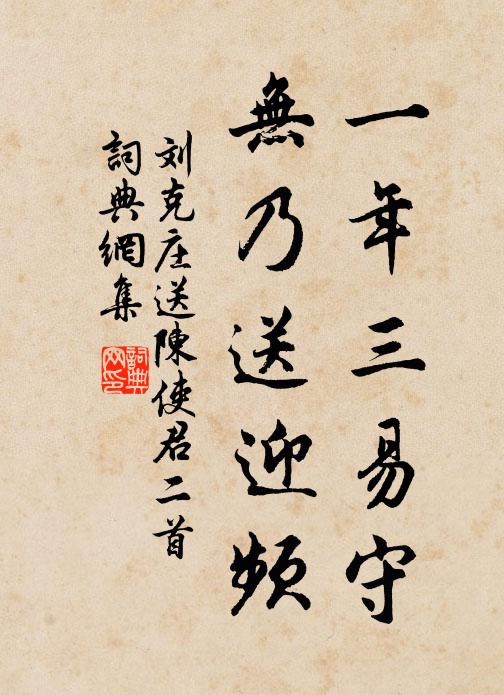 一年三易守
無乃送迎頻
刘克庄送陳使君二首
詞典網集
詞典網印